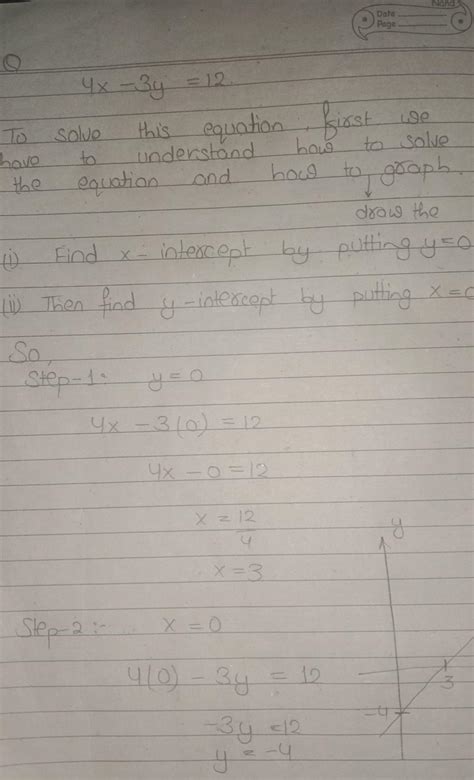 Date
Page
Q
4x - 3y = 12
To solve this equation, first we
have to understand how to solve
the equation and how to graph.
draw the
(i) Find x - intercept by putting y=0
(ii) Then find y-intercept by putting x=0
So,
Step-1: y = 0
4x - 3(0) = 12
4x - 0 = 12
x = 12
4
x = 3
y
Step-2:- x = 0
4(0) - 3y = 12
3
-4
-3y = 12
y = -4